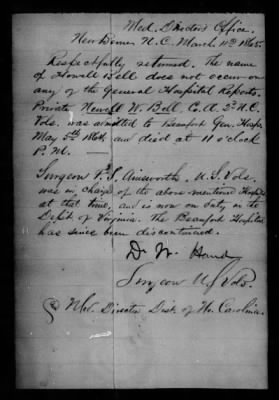 Med. Director's Office,
New Berne N.C. March 11th 1865.
Respectfully returned. The name
of Howell Bell does not occur on
any of the General Hospital Reports.
Private Newell W. Bell, Co. A. 3d N.C.
Vols. was admitted to Beaufort Gen. Hosp.
May 5th 1864 and died at 11 o'clock
P.M.
Surgeon F. S. Ainsworth, U.S. Vols.
was in charge of the above mentioned Hospital
at that time, and is now on duty in the
Dept. of Virginia. The Beaufort Hospital
has since been discontinued.
D. W. Hand
Surgeon U.S. Vols.
Med. Director Dist. of No. Carolina.